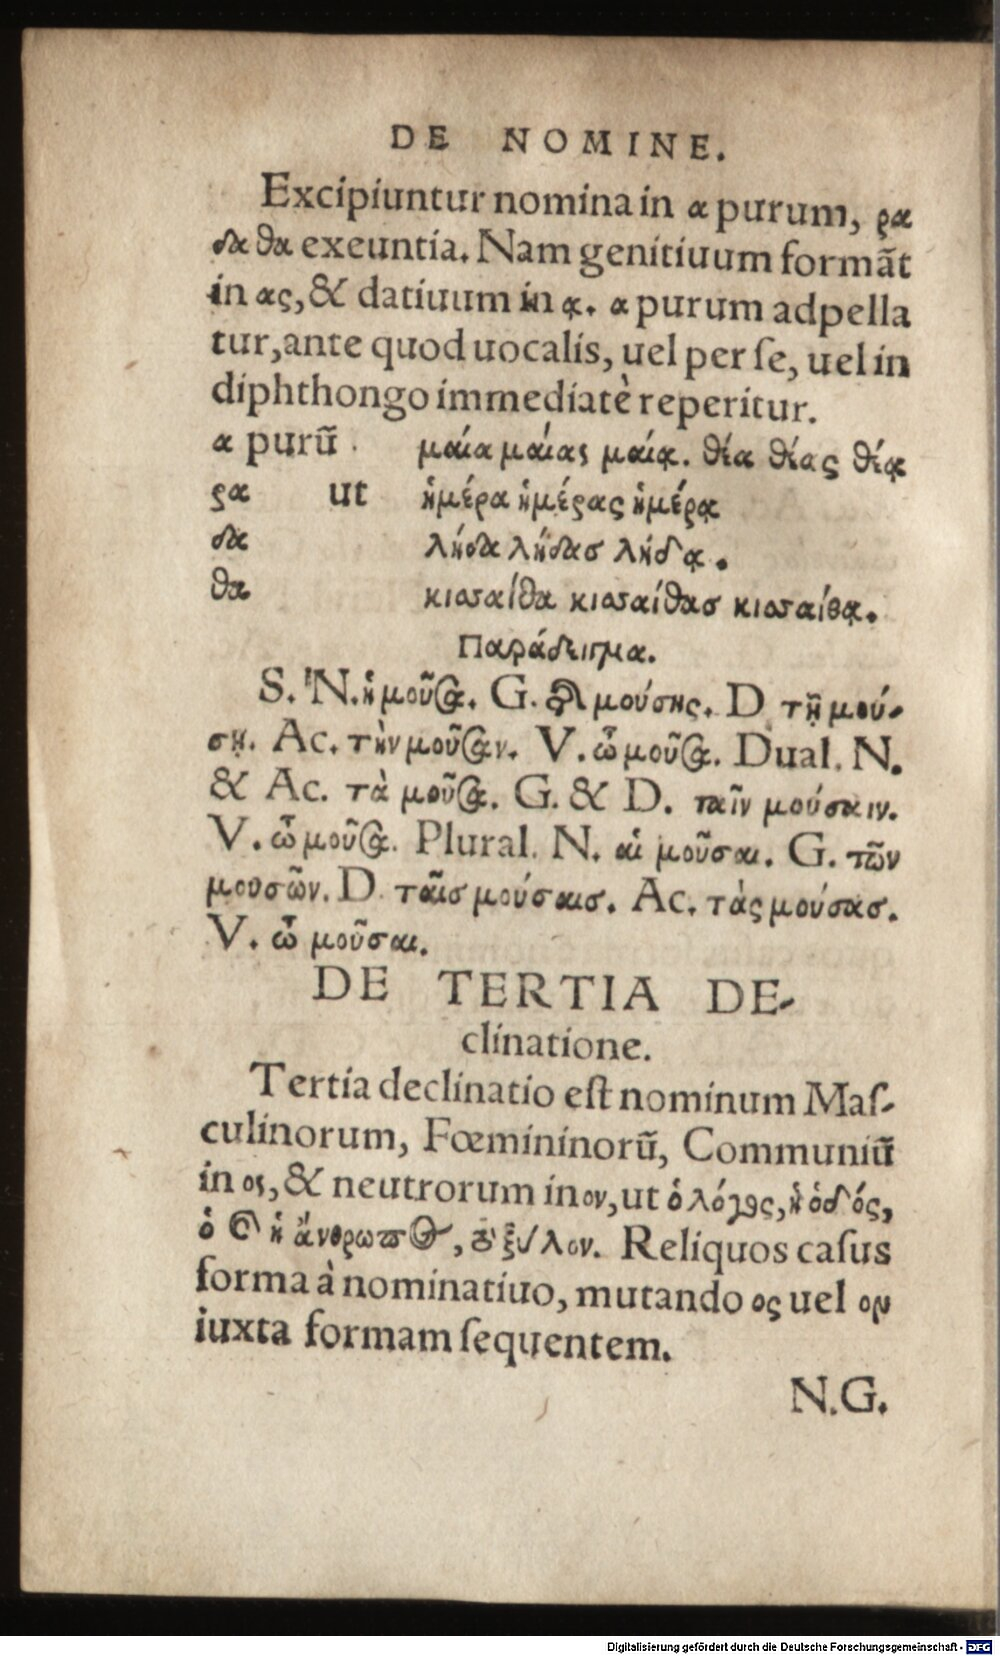 DE NOMINE.
Excipiuntur nomina in α purum, ρα
δα θα exeuntia. Nam genitiuum formãt
in ας, & datiuum in ᾳ. α purum adpella
tur, ante quod uocalis, uel per se, uel in
diphthongo immediatè reperitur.
α purũ . μαία μαίας μαίᾳ. θία θίας θίᾳ
ρα ut ἡμέρα ἡμέρας ἡμέρᾳ
δα λήδα λήδασ λήδᾳ.
θα κισσαίθα κισσαίθασ κισσαίθᾳ.
Παράδειγμα.
S. N. ἡ μοῦσα. G. τῆς μούσης. D τῇ μού-
σῃ. Ac. τὴν μοῦσαν. V. ὦ μοῦσα. Dual. N.
& Ac. τὰ μοῦσα. G. & D. ταῖν μούσαιν.
V. ὦ μοῦσα. Plural. N. αἱ μοῦσαι. G. τῶν
μουσῶν. D ταῖσ μούσαισ. Ac. τὰς μούσασ.
V. ὦ μοῦσαι.
DE TERTIA DE-
clinatione.
Tertia declinatio est nominum Mas-
culinorum, Fœmininorũ, Communiũ
in ος, & neutrorum in ον, ut ὁ λόγος, ἡ ὁδός,
ὁ καὶ ἡ ἄνθρωπος, τὸ ξύλον. Reliquos casus
forma à nominatiuo, mutando ος uel ον
iuxta formam sequentem.
N.G.
Digitalisierung gefördert durch die Deutsche Forschungsgemeinschaft - DFG